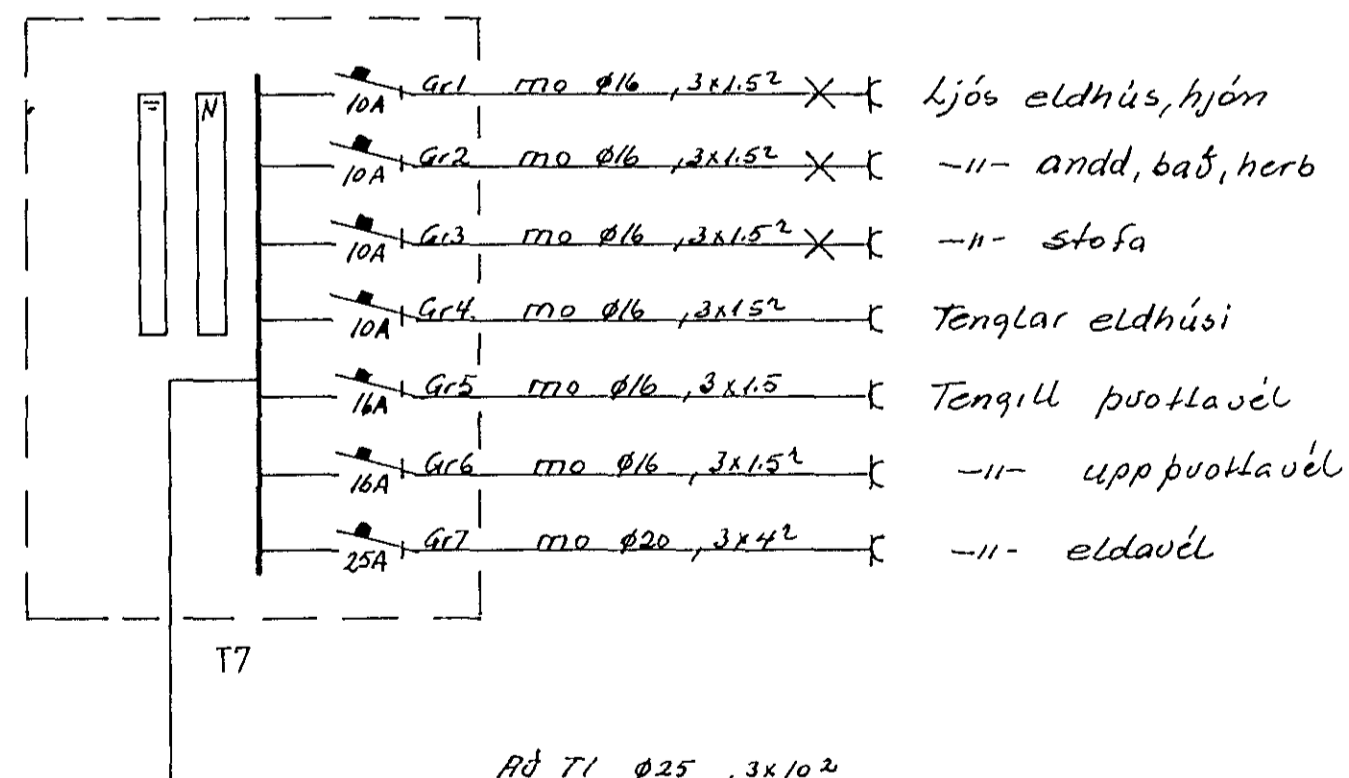 Gr1 mo ø16 , 3x1.5² Ljós eldhús, hjón
10A
N
Gr2 mo ø16 , 3x1.5² -"- andd, bað, herb
10A
Gr3 mo ø16 , 3x1.5² -"- stofa
10A
Gr4. mo ø16 , 3x15² Tenglar eldhúsi
10A
Gr5 mo ø16 , 3x1.5 Tengill þvottavél
16A
Gr6 mo ø16 , 3x1.5² -"- uppþvottavél
16A
Gr7 mo ø20 , 3x4² -"- eldavél
25A
T7
Að T1 ø25 , 3x10²